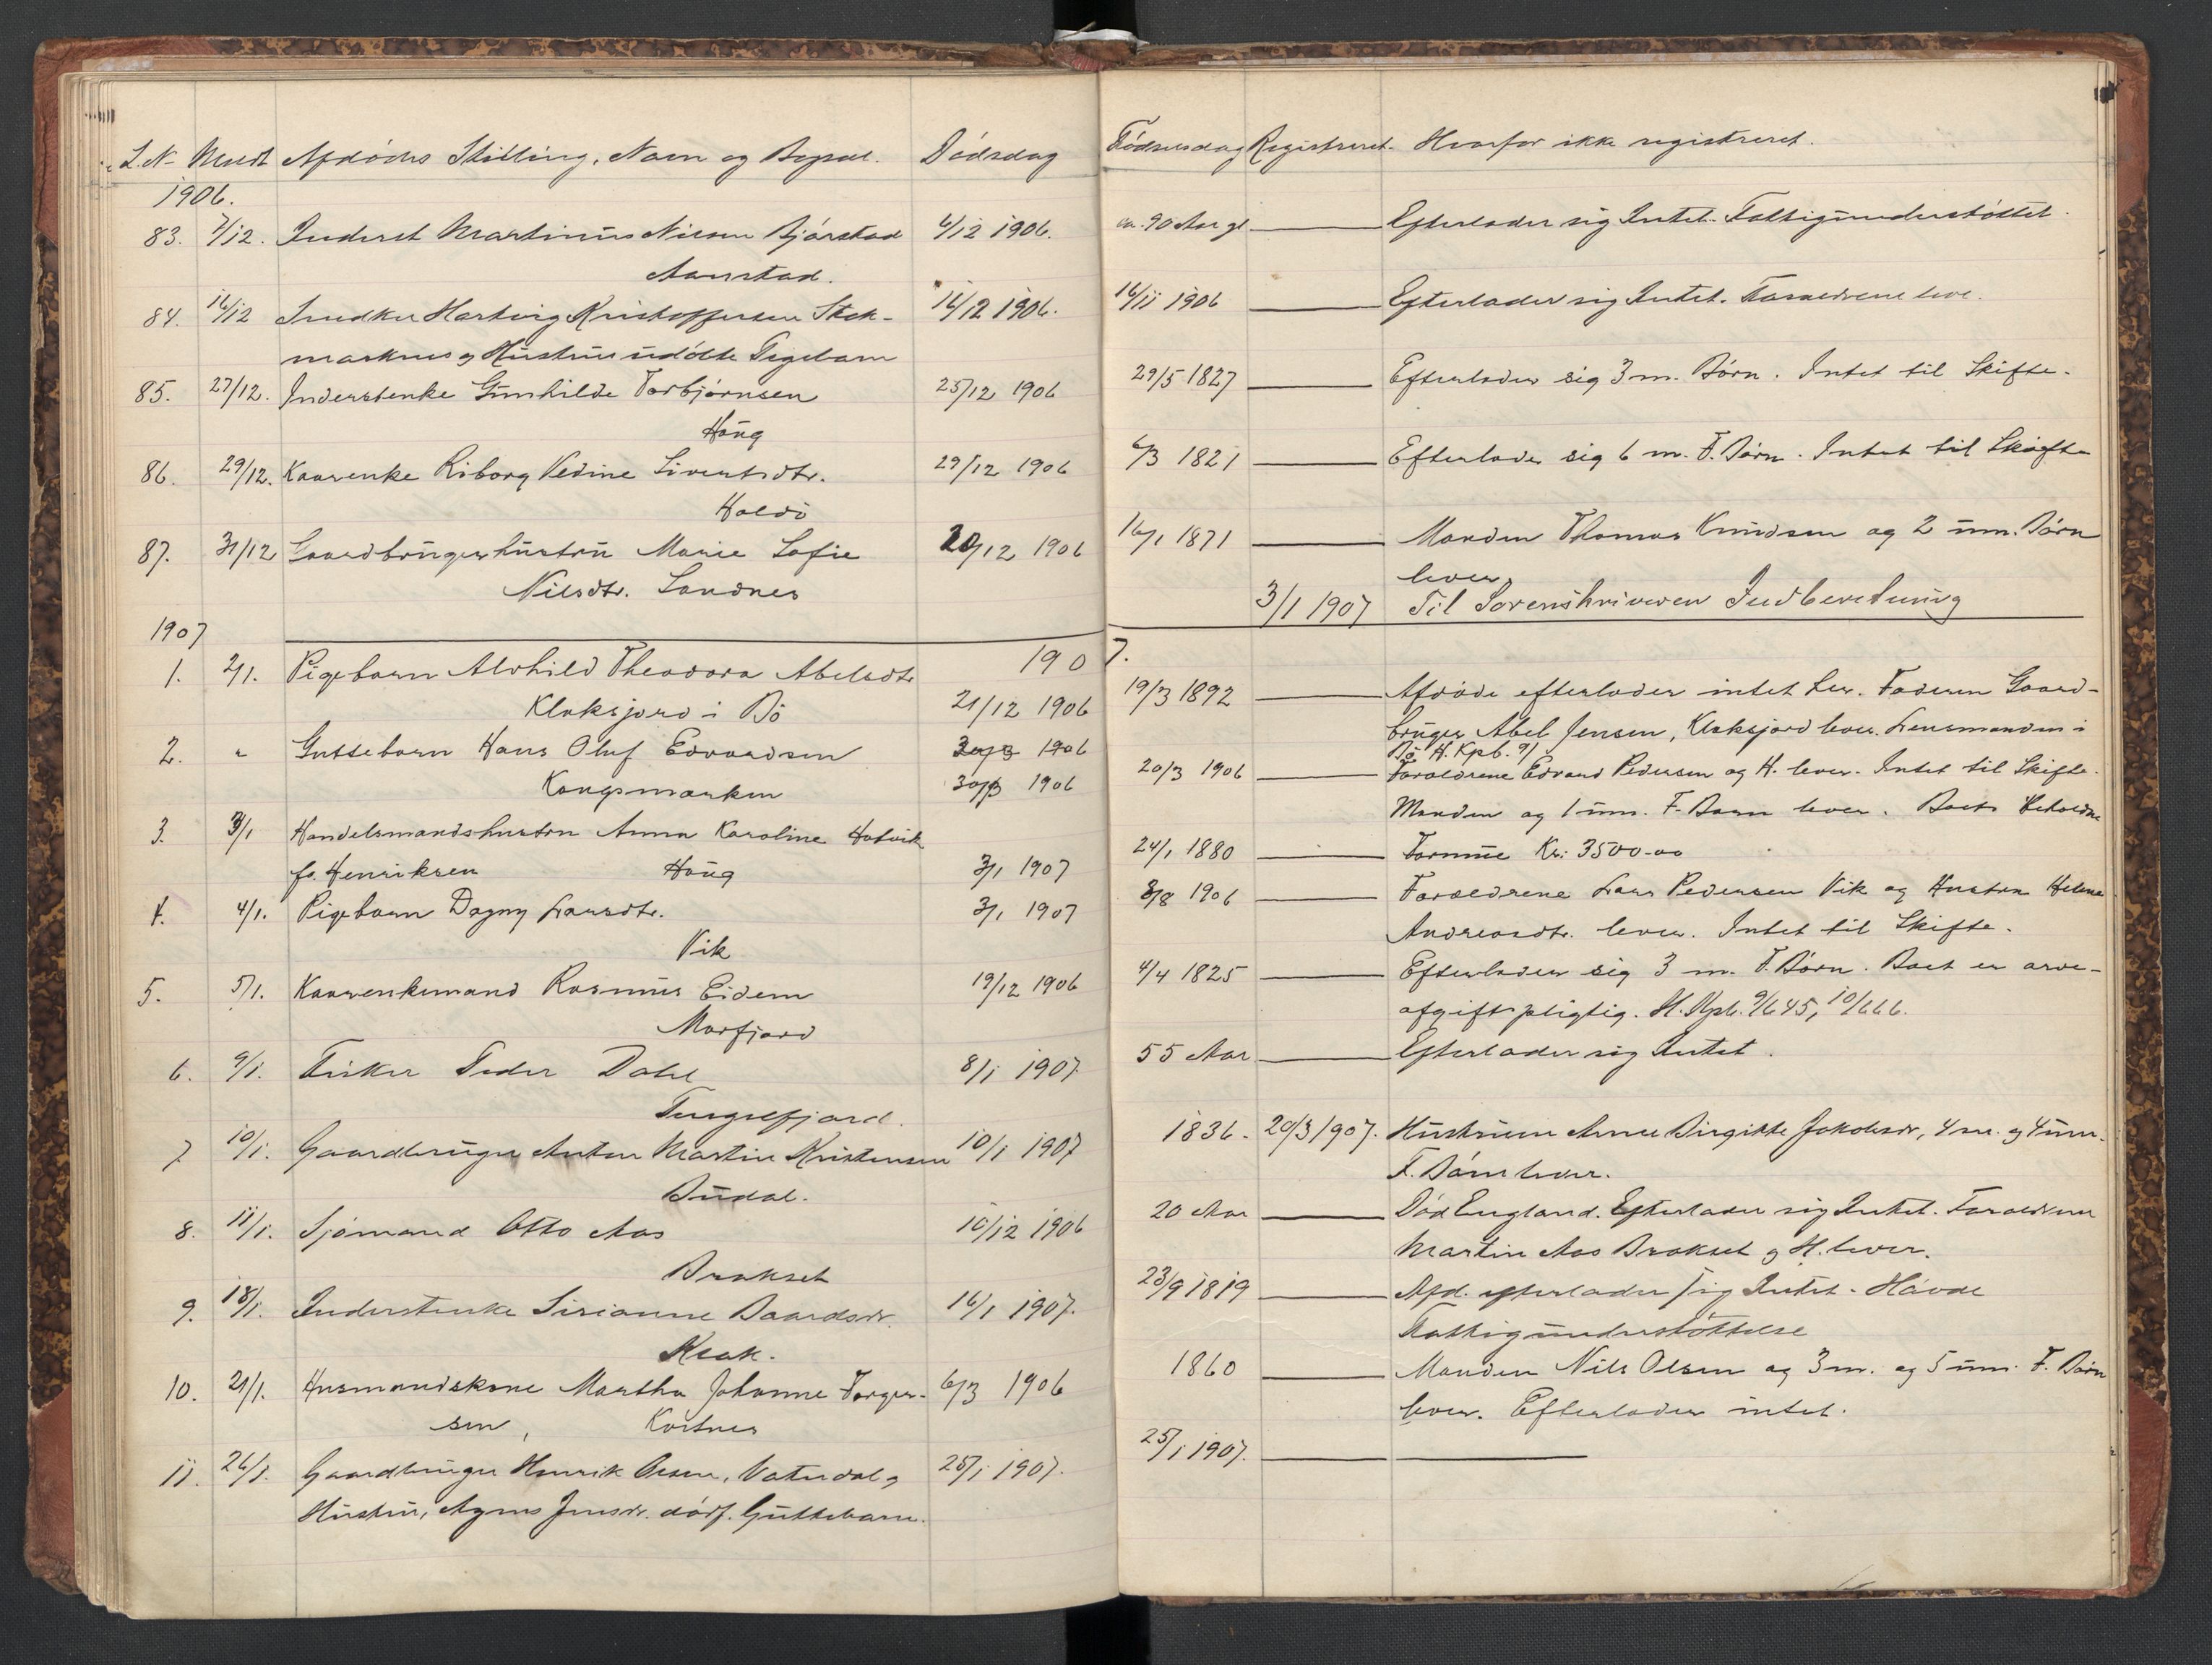 L.N. Meldt Afdødes Stilling, Navn og Bopæl. Dødsdag
1906.
83. 7/12. Inderst Martinus Nilsen Bjørstad 6/12 1906.
Aanstad.
84. 16/12 Snedker Hartvig Kristoffersen Stok-
marknes og Hustrus udøbte Pigebarn 16/12 1906.
85. 27/12. Inderstenke Gunhilde Torbjørnsen 25/12 1906
Haug
86. 29/12. Kaarenke Riborg Vedine Sivertsdtr. 29/12 1906
Haldø
87. 31/12 Gaardbrugerhustru Marie Sofie 20/12 1906
Nilsdtr. Sandnes
1907
190
1. 2/1. Pigebarn Alvhild Theodora Abelsdtr
Klaksjord i Bø 21/12 1906
2. " Guttebarn Hans Oluf Edvardsen 1906
Kongsmarken 1906
3. 3/1 Handelsmandshustru Anna Karoline Hotvik
f. Henriksen Haug 3/1 1907
4. 4/1. Pigebarn Dagny Larsdtr. 3/1 1907
Vik
5. 5/1. Kaarenkemand Rasmus Eidem 19/12 1906
Morfjord
6. 9/1. Fisker Peder Dahl 8/1 1907
Tengelfjord.
7. 10/1. Gaardbruger Anton Martin Kristensen 10/1 1907
Budal.
8. 11/1. Sjømand Otto Aas 10/12 1906
Brokset
9. 18/1. Inderstenke Sirianne Baardsdr. 16/1 1907.
10. 21/1. Husmandskone Martha Johanne Torger- 6/3 1906
sen, Kortnes
11. 26/1. Gaardbruger Henrik Olsen, Vatndal og 25/1 1907.
Hustru, Agnes Jensdr. dødf. Guttebarn.
Fødselsdag Registreret. Hvorfor ikke registreret.
ca. 90 Aar gl. Efterlader sig Intet. Fattigunderstøttet.
16/11 1906 Efterlader sig Intet. Forældrene leve.
29/5 1827 Efterlader sig 3 m. Børn. Intet til Skifte.
6/3 1821 Efterlader sig 6 m. F. Børn. Intet til Skifte
16/1 1871 Manden Thomas Knudsen og 2 um. Børn
lever.
3/1 1907 Til Sorenskriveren Indberetning
7.
19/3 1892 Afdøde efterlader intet her. Faderen Gaard-
bruger Abel Jensen, Klaksjord lever. Lensmanden i
Bø H. Kpb. 9/
20/3 1906 Forældrene Edvard Pedersen og H. lever. Intet til Skifte.
Manden og 1 um. F. Barn lever. Boets Beholdne
24/1 1880 Formue Kr: 3500-00
3/8 1906 Forældrene Lars Pedersen Vik og Hustru Helene
Andreasdtr. lever. Intet til Skifte.
4/4 1825 Efterlader sig 3 m. F. Børn. Boet er arve-
afgiftspligtig. H. Kpb. 9/645, 10/666.
55 Aar Efterlader sig Intet.
1836. 20/3 1907. Hustruen Anne Birgitte Jakobsdr, 4 m. og 4 um.
F. Børn lever.
20 Aar Død England. Efterlader sig Intet. Forældrene
Martin Aas Brokset og H. lever.
23/9 1819 Afd. efterlader sig Intet. Havde
Fattigunderstøttelse
1860 Manden Nils Olsen og 3 m. og 5 um. F. Børn
lever. Efterlader intet.
25/1 1907.